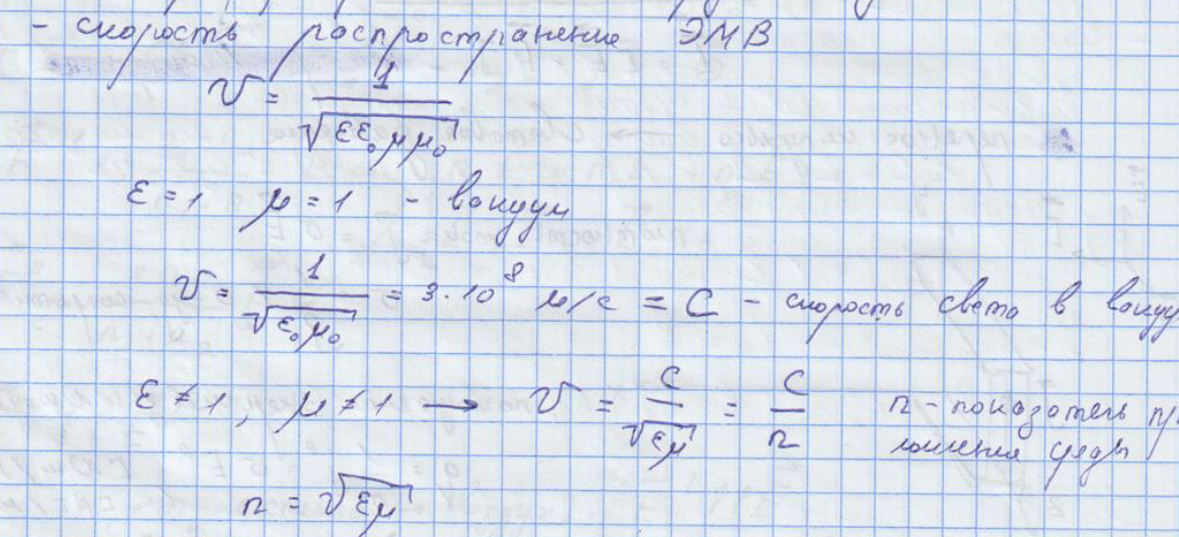 - скорость распространение ЭМВ
v = 1/√(εε₀μμ₀)
ε = 1 μ = 1 - вакуум
v = 1/√(ε₀μ₀) = 3·10⁸ м/с = C - скорость света в вакуу
ε ≠ 1, μ ≠ 1 → v = C/√(εμ) = C/n n - показатель пр
ломления среды
n = √(εμ)